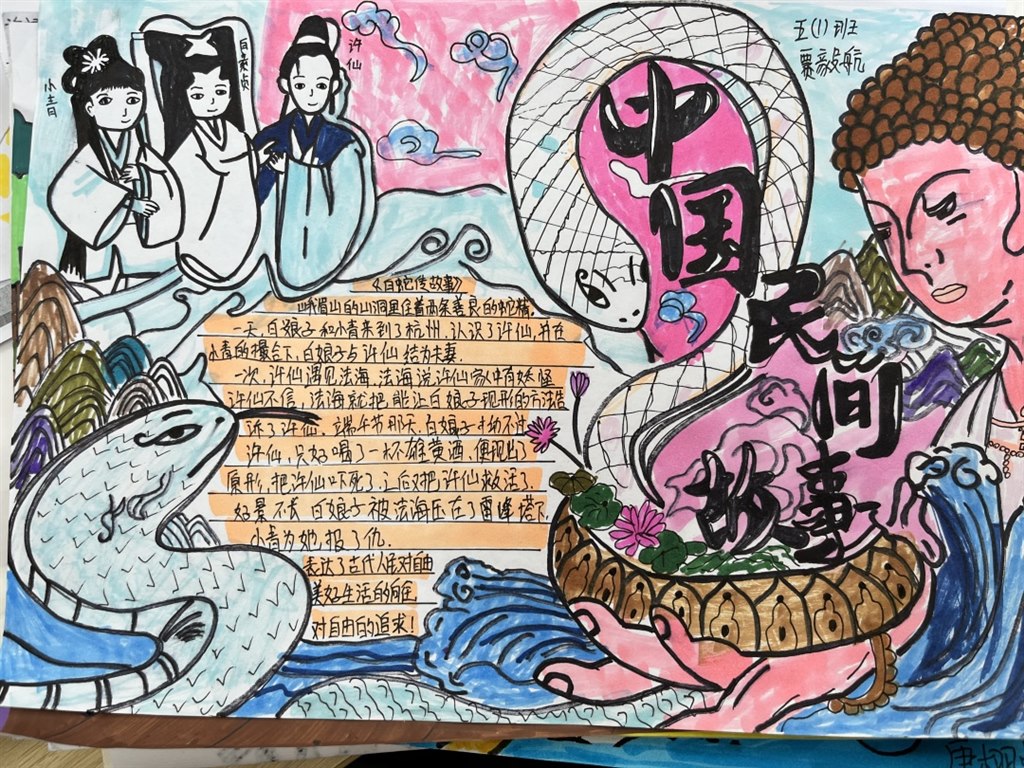 小青
白素贞
许仙
五(1)班
贾毅航
中国民间故事
《白蛇传故事》
峨眉山的山洞里住着两条善良的蛇精。
一天,白娘子和小青来到了杭州,认识了许仙,并在
小青的撮合下,白娘子与许仙结为夫妻.
一次,许仙遇见法海,法海说许仙家中有妖怪
许仙不信,法海就把能让白娘子现形的方法告
诉了许仙,端午节那天,白娘子拗不过
许仙,只好喝了一杯雄黄酒,便现出了
原形,把许仙吓死了.之后又把许仙救活了.
好景不长 白娘子被法海压在了雷峰塔下.
小青为她,报了仇.
表达了古代人民对自由
美好生活的向往
对自由的追求!